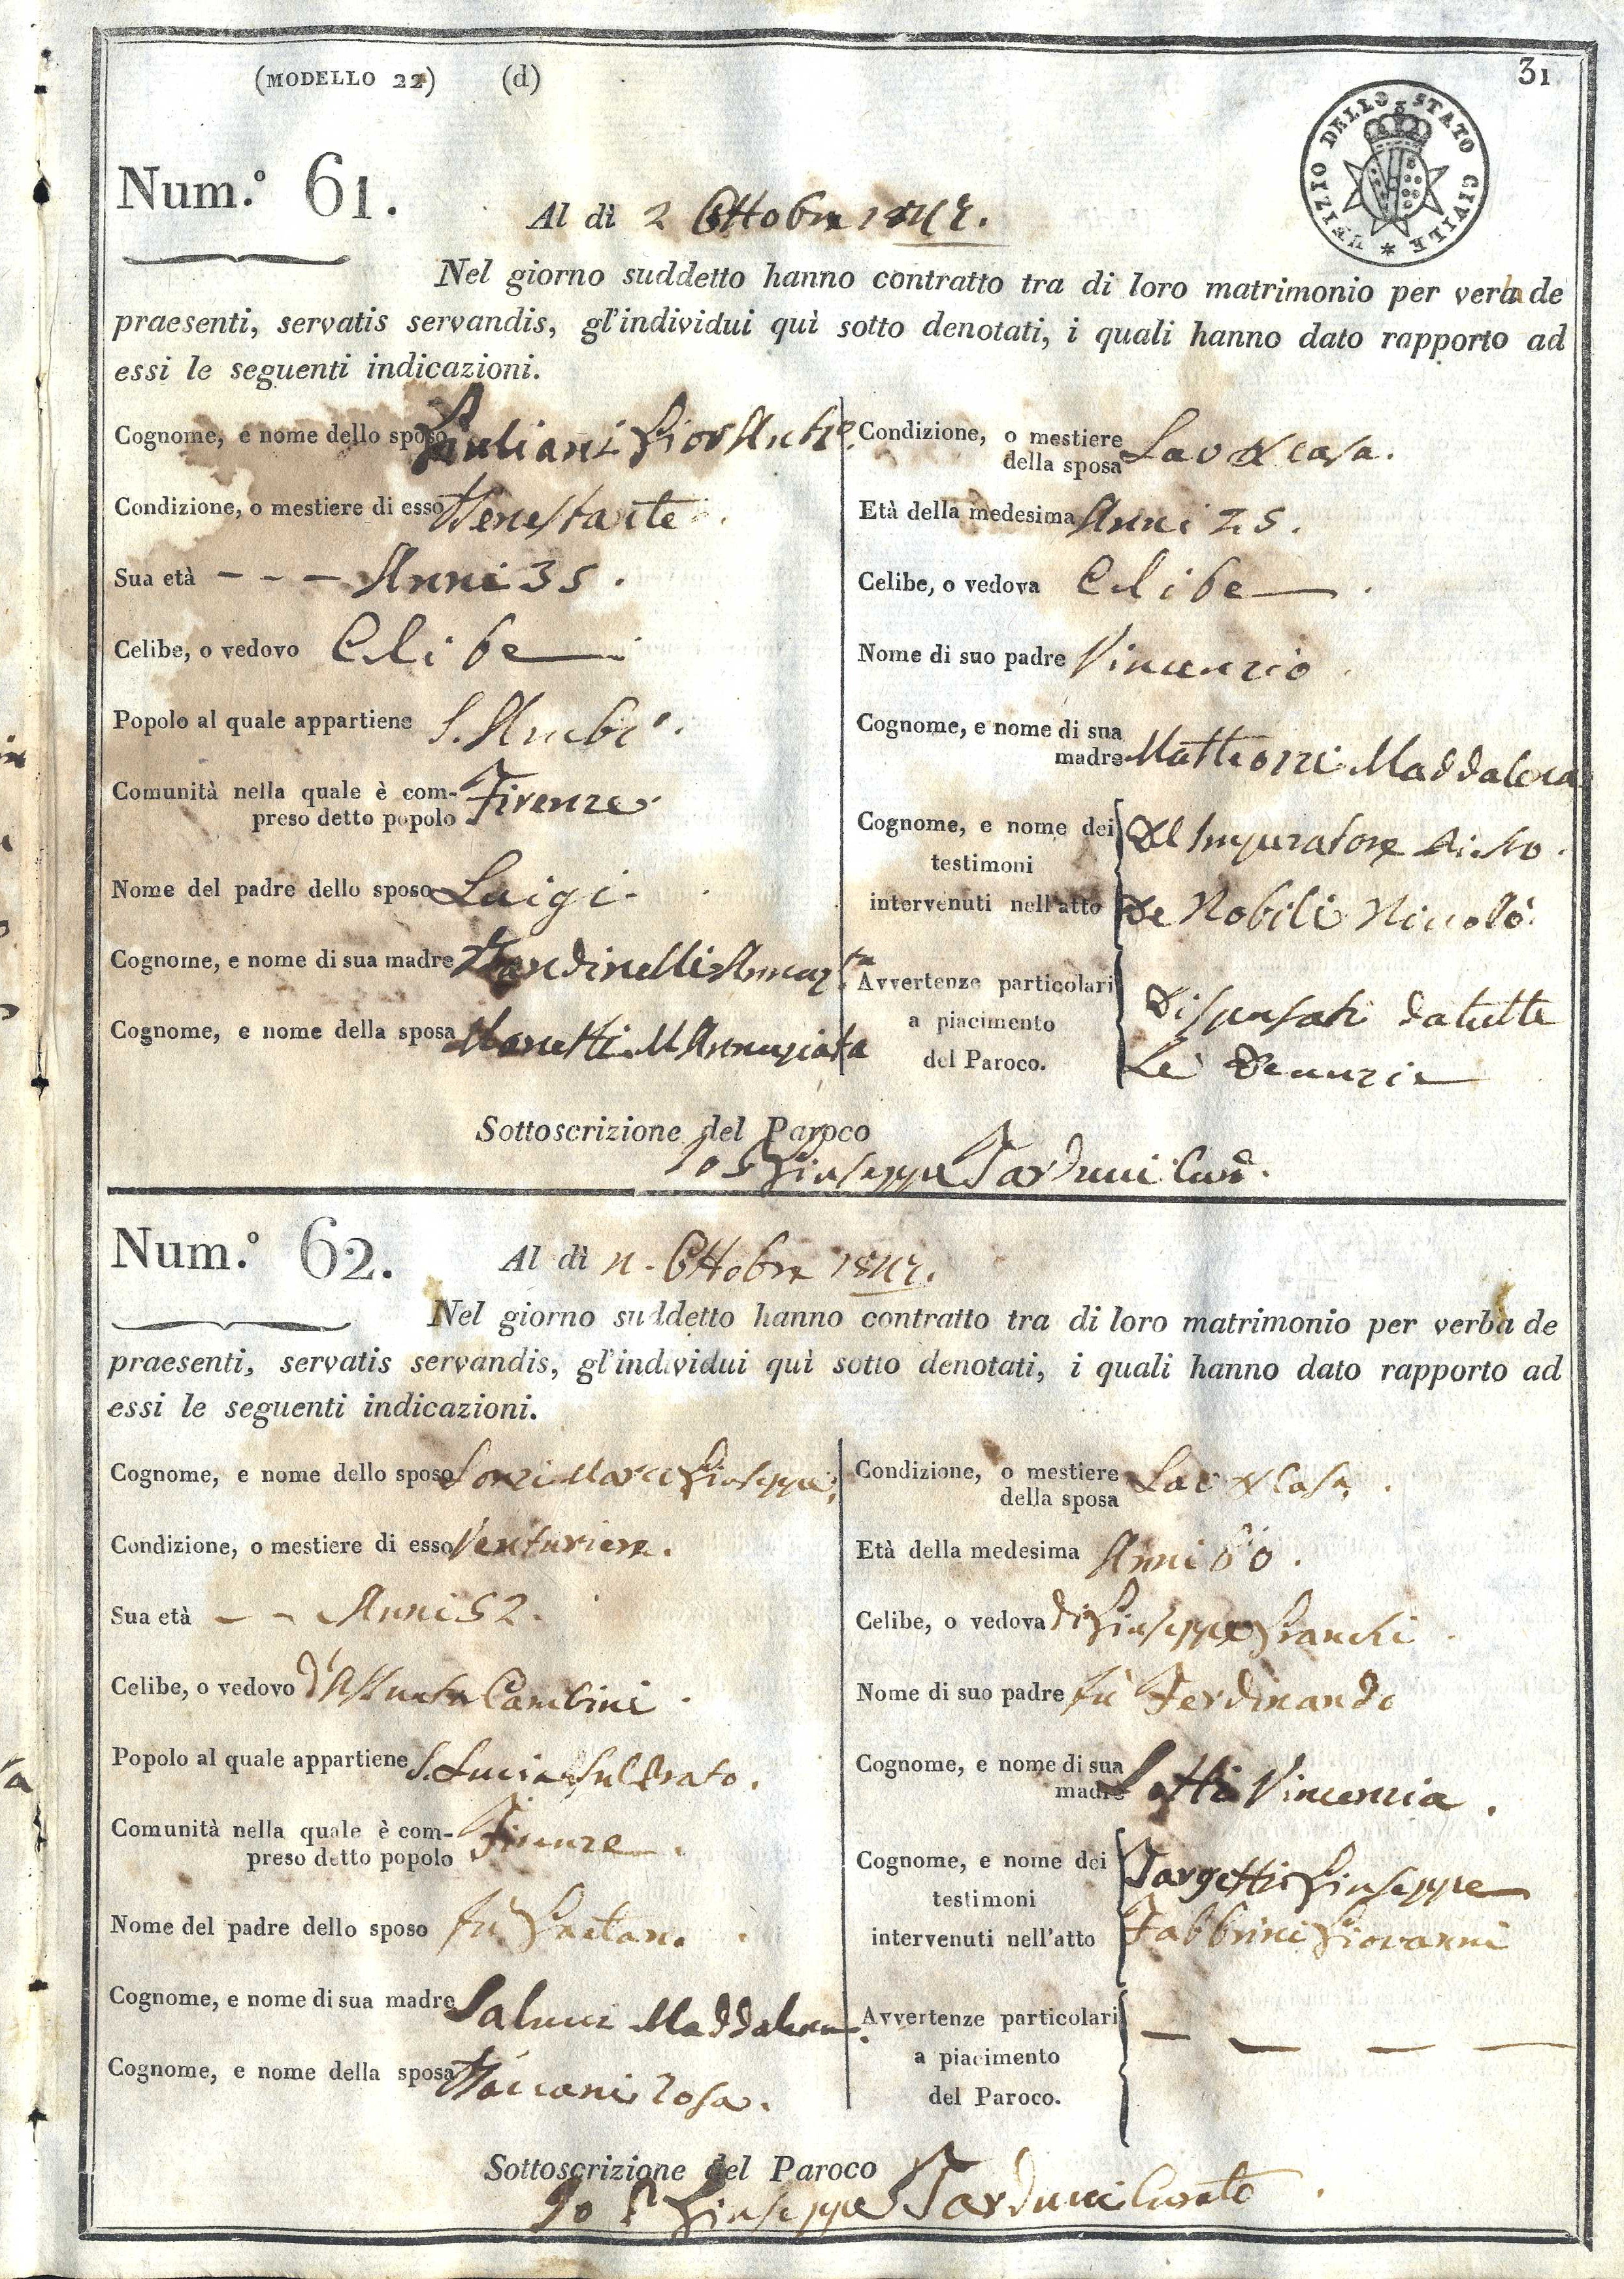 (MODELLO 22) (d)
31
UFIZIO DELLO STATO CIVILE *
Num.º 61.
Al dì 2 Ottobre
Nel giorno suddetto hanno contratto tra di loro matrimonio per verba de
praesenti, servatis servandis, gl'individui quì sotto denotati, i quali hanno dato rapporto ad
essi le seguenti indicazioni.
Cognome, e nome dello sposo Giuliani
Condizione, o mestiere di esso Benestante
Sua età - - - Anni 35.
Celibe, o vedovo Celibe
Popolo al quale appartiene
Comunità nella quale è com-
preso detto popolo Firenze
Nome del padre dello sposo Luigi.
Cognome, e nome di sua madre Bandinelli
Cognome, e nome della sposa Monetti M Annunziata
Condizione, o mestiere
della sposa Casa.
Età della medesima Anni 25.
Celibe, o vedova Celibe
Nome di suo padre Vincenzio
Cognome, e nome di sua
madre Matteoni Maddalena
Cognome, e nome dei
testimoni
intervenuti nell'atto
Del Imperatore
De Nobili Niccolò
Avvertenze particolari
a piacimento
del Paroco.
Dispensati da tutte
Le Denunzie
Sottoscrizione del Paroco
Giuseppe Tarducci Cur.
Num.º 62.
Al dì Ottobre
Nel giorno suddetto hanno contratto tra di loro matrimonio per verba de
praesenti, servatis servandis, gl'individui quì sotto denotati, i quali hanno dato rapporto ad
essi le seguenti indicazioni.
Cognome, e nome dello sposo Giuseppe
Condizione, o mestiere di esso Venturiere.
Sua età - - Anni 52.
Celibe, o vedovo d'Assunta Cambini
Popolo al quale appartiene S. Lucia sul Prato.
Comunità nella quale è com-
preso detto popolo Firenze
Nome del padre dello sposo fù Gaetano
Cognome, e nome di sua madre Salucci Maddalena.
Cognome, e nome della sposa Rosa.
Condizione, o mestiere
della sposa Casa.
Età della medesima Anni
Celibe, o vedova di Giuseppe Franchi
Nome di suo padre fù Ferdinando
Cognome, e nome di sua
madre Lotti Vincenzia.
Cognome, e nome dei
testimoni
intervenuti nell'atto
Targetti Giuseppe
Fabbrini Giovanni
Avvertenze particolari
a piacimento
del Paroco.
Sottoscrizione del Paroco
Io P. Giuseppe Tarducci Curato